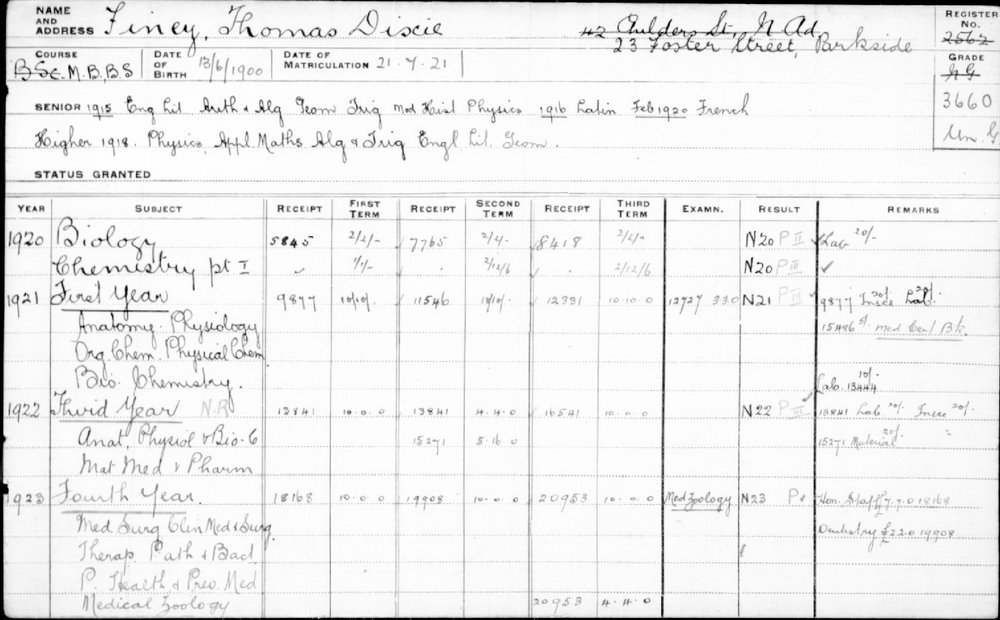 NAME AND ADDRESS Finey, Thomas Dixie 42 Childers St, N. Ad.
23 Foster Street, Parkside
REGISTER No. 2562
COURSE BSc. M.B, B S DATE OF BIRTH 13/6/1900 DATE OF MATRICULATION 21.4.21 GRADE
3660
Un. G
SENIOR 1915 Eng Lit Arith & Alg Geom Trig Mod Hist Physics 1916 Latin Feb 1920 French
Higher 1918. Physics, Appl. Maths Alg & Trig Engl Lit. Geom.
STATUS GRANTED
YEAR SUBJECT RECEIPT FIRST TERM RECEIPT SECOND TERM RECEIPT THIRD TERM EXAMN. RESULT REMARKS
1920 Biology 5845 2/2/- 7765 2/2/- 8418 2/2/- N20 P II Lab 20/-
Chemistry pt I 1/1/- 2/12/6 2/12/6 N20 P III ✓
1921 First Year 9877 10/10/- 11546 10/10/- 12331 10.10.0 12727 3.3.0 N21 P III 9877 Insce 20/- Lab. 20/-
Anatomy. Physiology 15486 5/- Med Cert Bk.
Org. Chem. Physical Chem
Bio. Chemistry. Lab. 13444 10/-
1922 Third Year N.R 13841 10.0.0 13841 4.4.0 16541 10.0.0 N22 P III 13841 Lab. 20/- Insce 20/-
Anat, Physiol & Bio-C 15271 5.16.0 15271 Material 20/-
Mat Med & Pharm
1923 Fourth Year. 18168 10.0.0 19908 10.0.0 20953 10.0.0 Med Zoology N23 P Hon. Staff £7.7.0 18168
Med Surg Clin Med & Surg Dentistry £2.2.0 19908
Therap. Path & Bact
P. Health & Prev. Med
Medical Zoology 20953 4.4.0